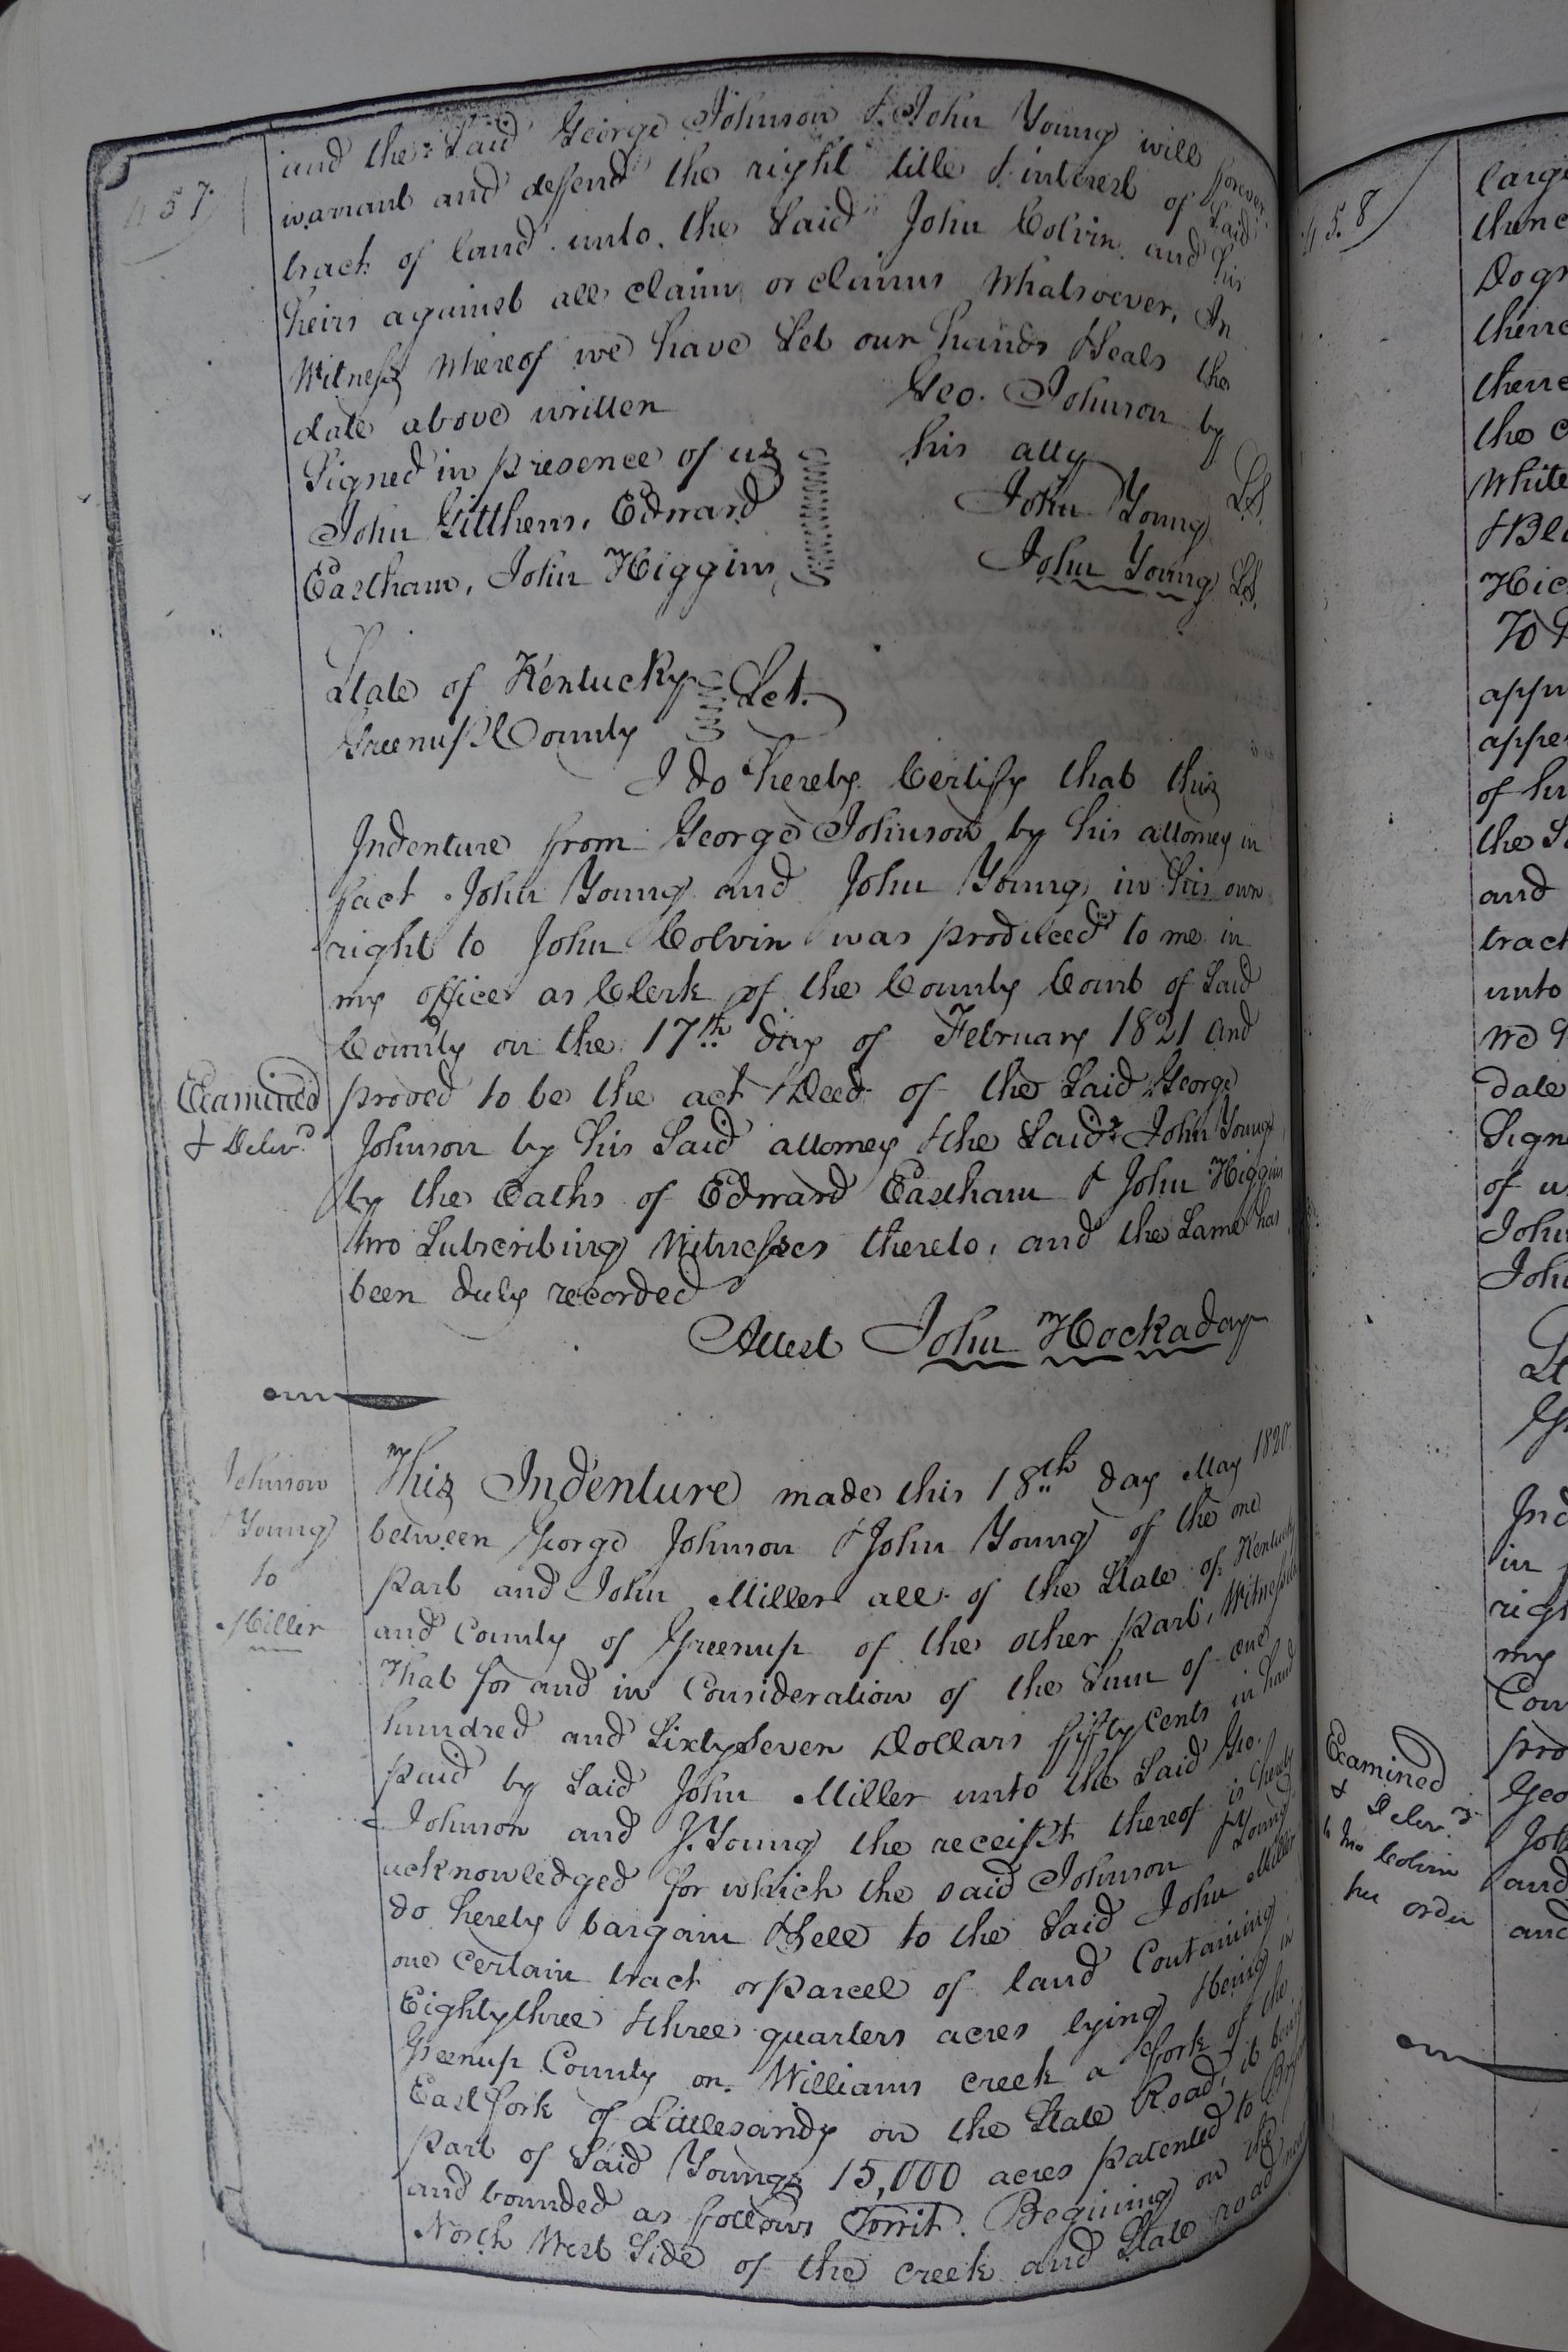 457
and the Said George Johnson & John Young will forever
warrant and defend the right title & interest of Said
tract of land unto the Said John Colvin and his
heirs against all claim or claims Whatsoever, In
Witness Whereof we have Set our hands & Seals the
date above written
Geo. Johnson by
his atty
John Young L.S.
John Young L.S.
Signed in presence of us
John Gitthens, Edward
Eastham, John Higgins
State of Kentucky
Greenup County Sct.
I do hereby Certify that this
Indenture from George Johnson by his attorney in
fact John Young and John Young in his own
right to John Colvin was produced to me in
my office as Clerk of the County Court of Said
County on the 17th day of February 1821 and
proved to be the act & Deed of the Said George
Johnson by his Said attorney & the Said John Young
by the Oaths of Edward Eastham & John Higgins
two Subscribing Witnesses thereto, and the Same has
been duly recorded
Attest John Hockaday
Examined
& Delivd
Johnson
& Young
to
Miller
This Indenture made this 18th day May 1820
between George Johnson & John Young of the one
part and John Miller all of the State of Kentucky
and County of Greenup of the other Part, Witnesseth
That for and in Consideration of the Sum of one
hundred and Sixty Seven Dollars fifty Cents in hand
paid by Said John Miller unto the Said Geo.
Johnson and J. Young the receipt thereof is hereby
acknowledged for which the said Johnson & Young
do hereby bargain & Sell to the Said John Miller
one Certain tract or parcel of land Containing
Eighty three & three quarters acres lying & being in
Greenup County on Williams creek a fork of the
East fork of Littlesandy on the State Road, it being
part of Said Youngs 15,000 acres patented to
and bounded as follows Towit. Begining on the
North West Side of the creek and State road
458
larg
thenc
Dogw
thenc
thenc
the
White
& Bl
Hic
To
appu
appe
of hi
the S
and
tract
unto
we
date
Sign
of u
John
John
Ind
in
righ
my
Cou
pro
Geo
Joh
and
and
Examined
& Delivd
to Jno Colvin
per order